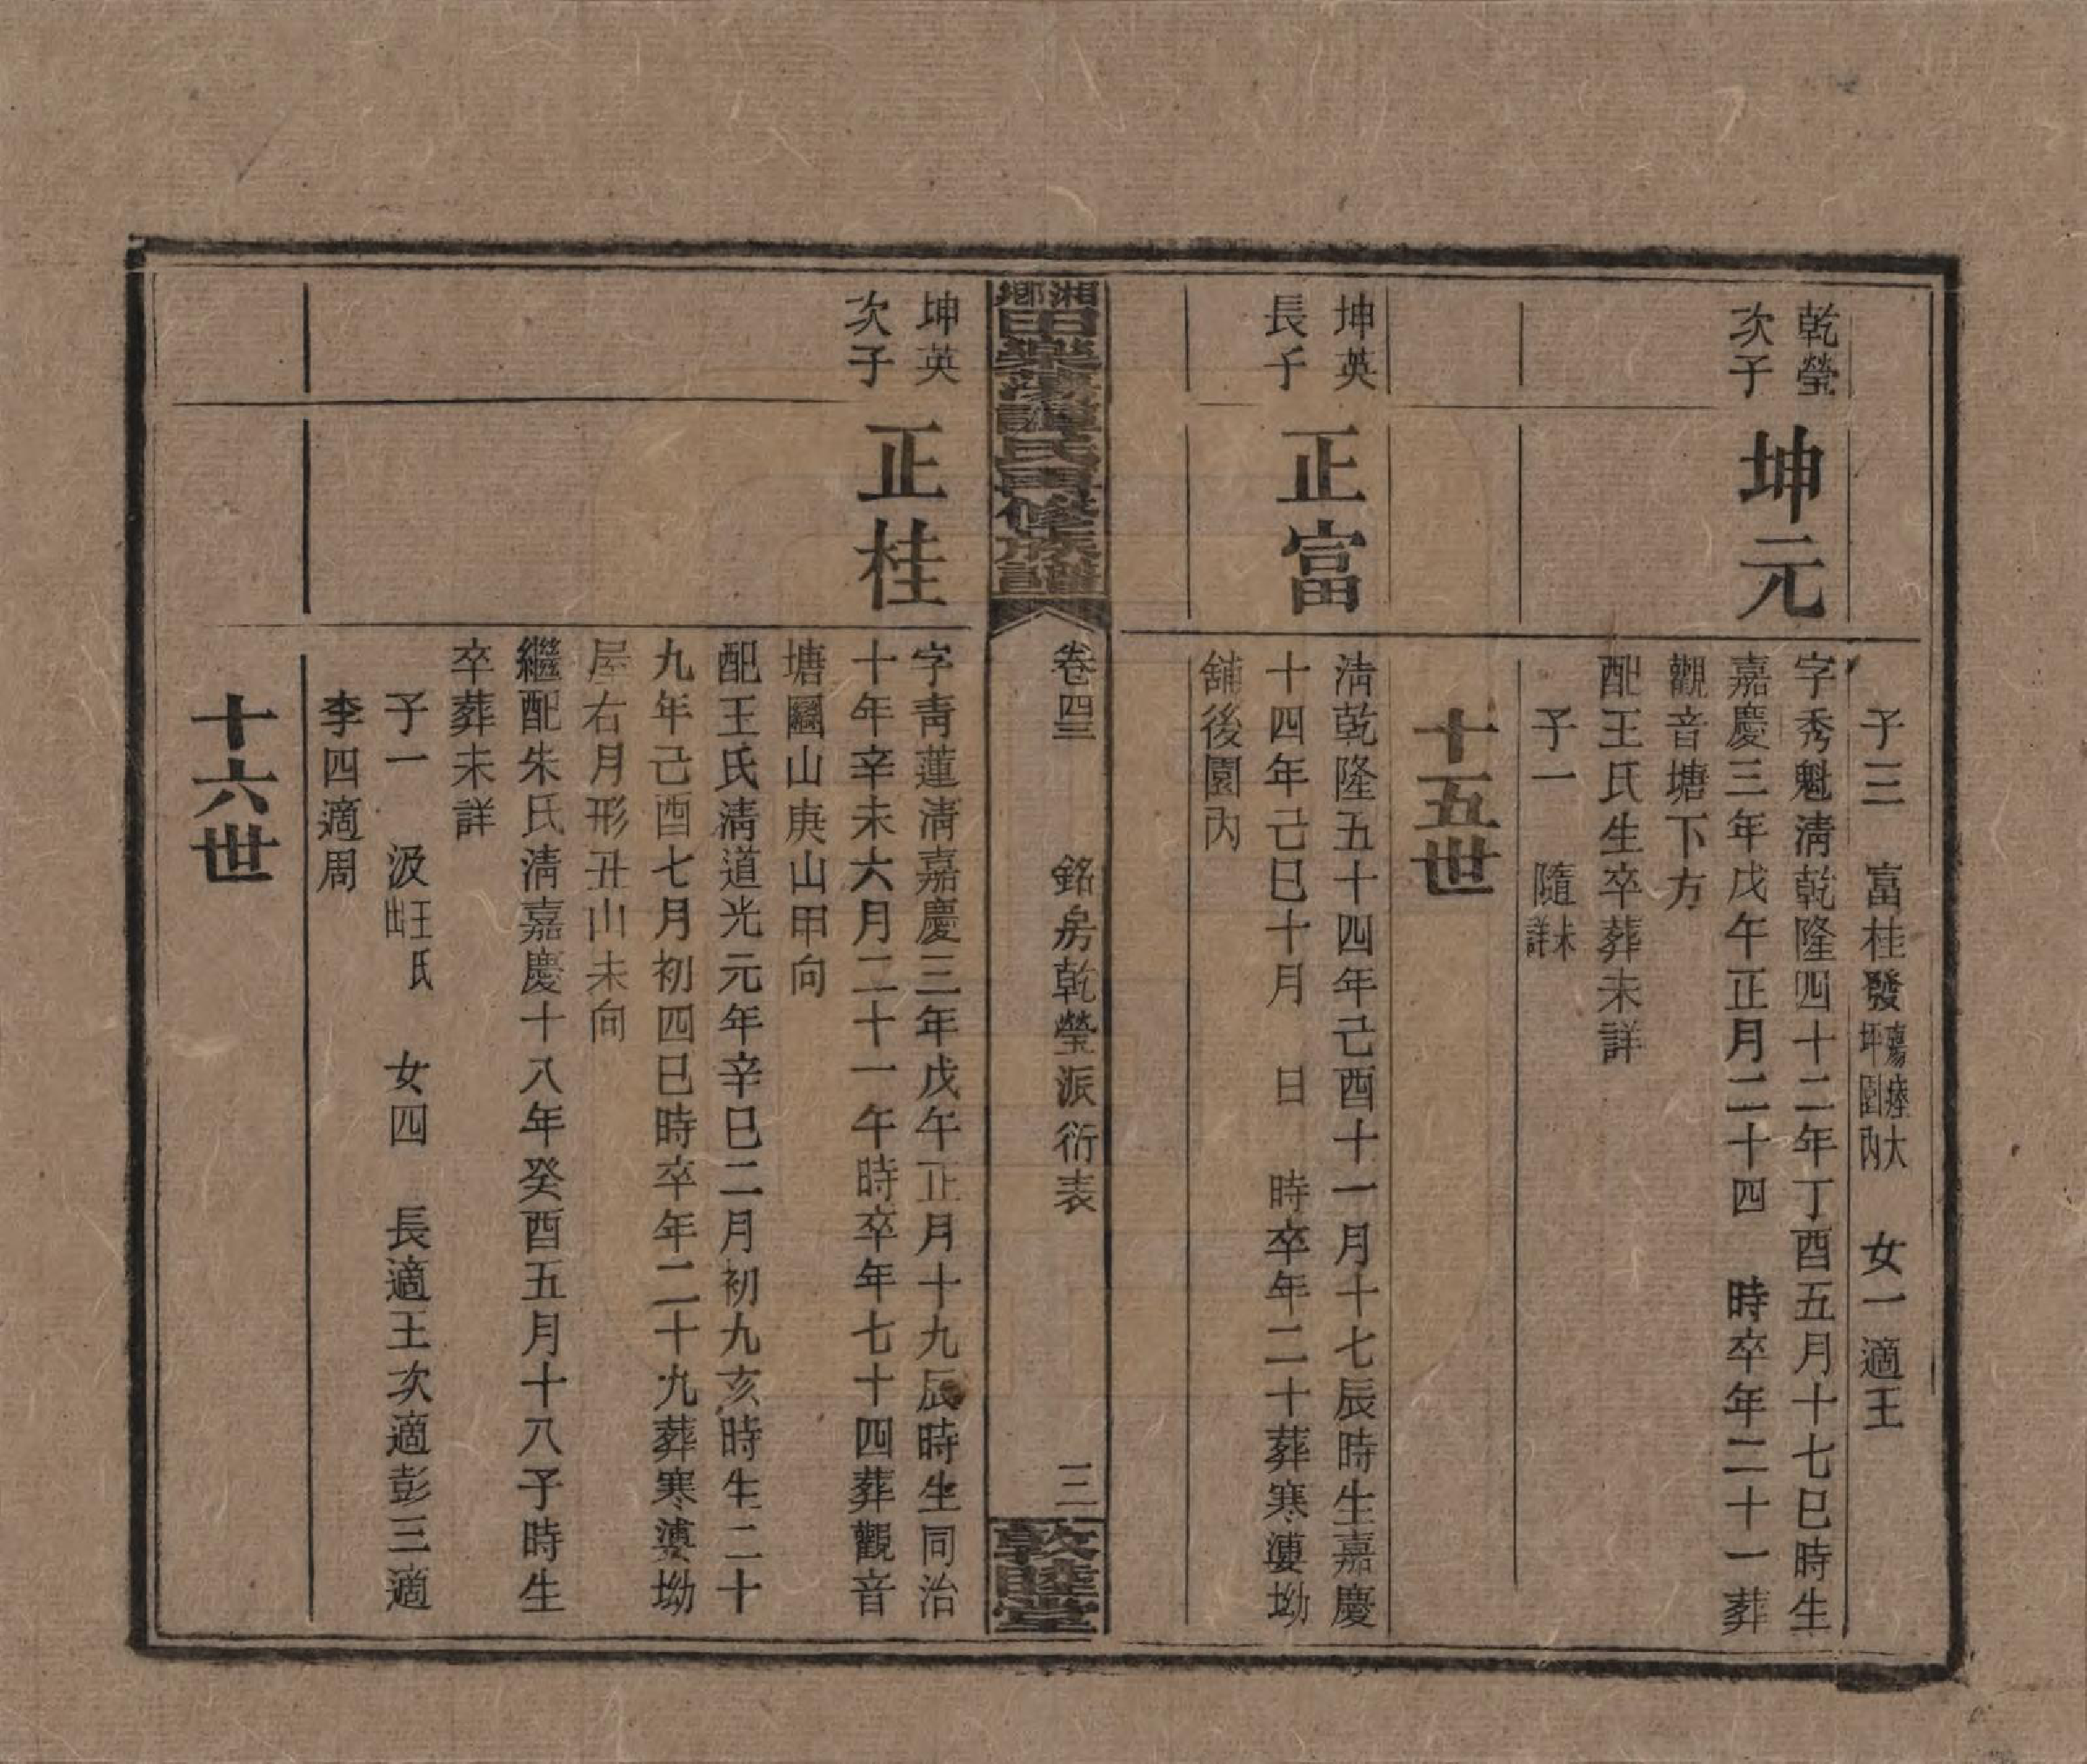 子三　富桂發殤瘞大坪園內　女一適王
乾瑩
次子
坤元
字秀魁淸乾隆四十二年丁酉五月十七巳時生
嘉慶三年戊午正月二十四　時卒年二十一葬
觀音塘下方
配王氏生卒葬未詳
子一　隨未詳
十五世
坤英
長子
正富
淸乾隆五十四年己酉十一月十七辰時生嘉慶
十四年己巳十月　日　時卒年二十葬寒婆坳
舖後園內
湘鄉田樂灣譚氏四修族譜
卷四三
銘房乾瑩派衍表
三
敦睦堂
坤英
次子
正桂
字靑蓮淸嘉慶三年戊午正月十九辰時生同治
十年辛未六月二十一午時卒年七十四葬觀音
塘圞山庚山甲向
配王氏淸道光元年辛巳二月初九亥時生二十
九年己酉七月初四巳時卒年二十九葬寒婆坳
屋右月形丑山未向
繼配朱氏淸嘉慶十八年癸酉五月十八子時生
卒葬未詳
子一　汲王氏出　女四　長適王次適彭三適
李四適周
十六世